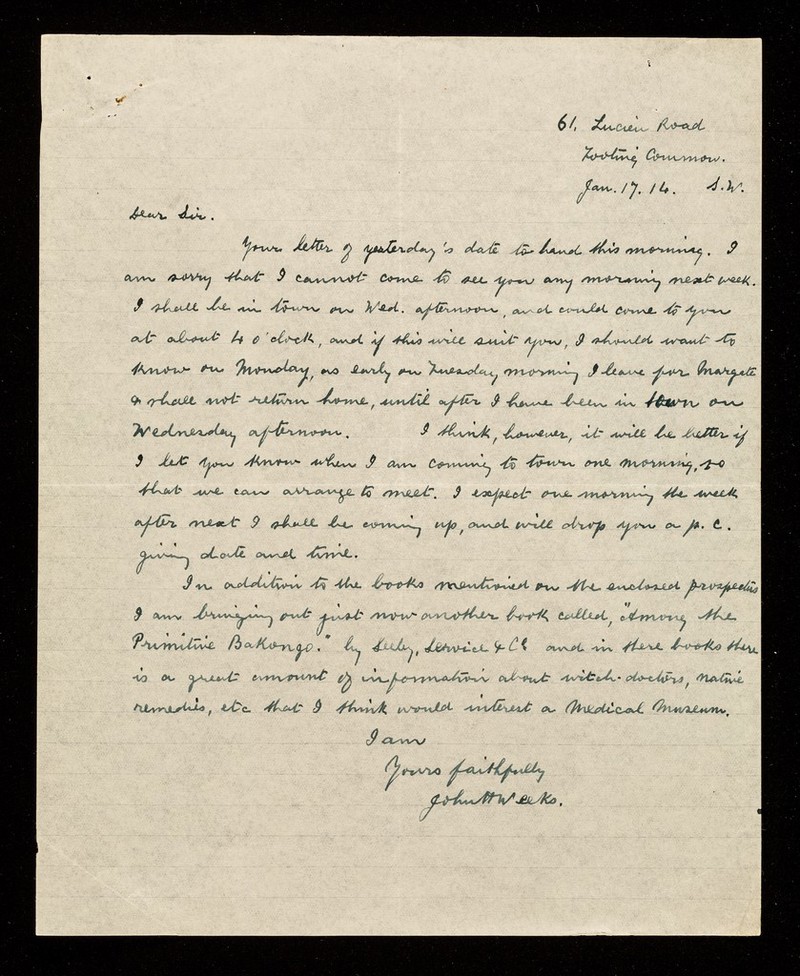 61, Lucien Road
Tooting Common.
Jan. 17. 14. S.W.
Dear Sir.
Your letter of yesterday's date to hand this morning. I
am sorry that I cannot come to see you any morning next week.
I shall be in town on Wed. afternoon, and could come to you
at about 4 o'clock, and if this will suit you, I should want to
know on Monday, as early on Tuesday morning I leave for Margate
& shall not return home, until after I have been in town on
Wednesday afternoon. I think, however, it will be better if
I let you know when I am coming to town one morning, so
that we can arrange to meet. I expect one morning the week
after next I shall be coming up, and will drop you a p.c.
giving date and time.
In addition to the books mentioned on the enclosed prospectus
I am bringing out just now another book called, "Among the
Primitive Bakongo." by Seeley, Service & Co and in these books there
is a great amount of information about witch-doctors, native
remedies, etc that I think would interest a Medical Museum.
I am
Yours faithfully
John H Weeks.